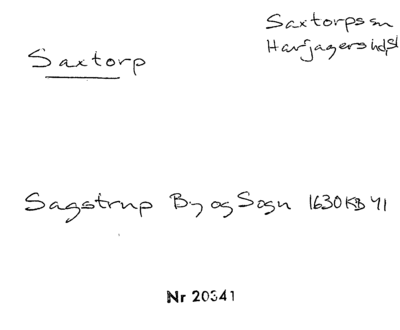 Saxtorp
Saxtorps sn
Harjagers hd, Sk
Sagstrup By og Sogn 1630 KB 41
Nr 20341